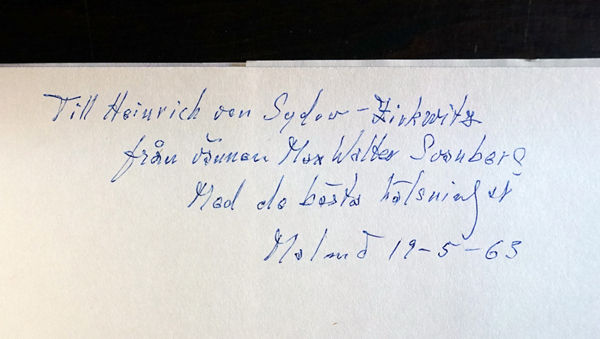 Till Heinrich von Sydow-Zirkwitz
från vännen Max Walter Svanberg
Med de bästa hälsningar
Malmö 19-5-63